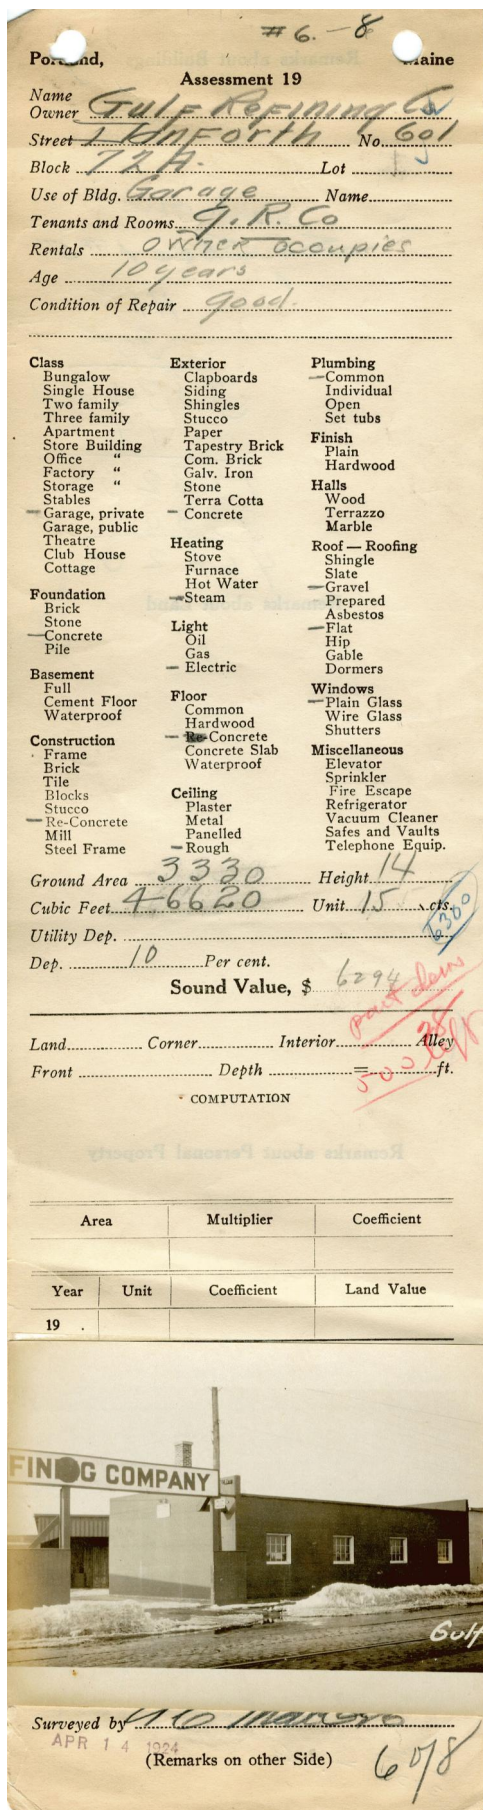 # 6. - 8
Portland, Maine
Assessment 19
Name
Owner Gulf Refining Co
Street Danforth No. 601
Block 72 A. Lot
Use of Bldg. Garage Name
Tenants and Rooms G. R. Co
Rentals owner occupies
Age 10 years
Condition of Repair good.
Class
Bungalow
Single House
Two family
Three family
Apartment
Store Building
Office "
Factory "
Storage "
Stables
— Garage, private
Garage, public
Theatre
Club House
Cottage
Foundation
Brick
Stone
— Concrete
Pile
Basement
Full
Cement Floor
Waterproof
Construction
Frame
Brick
Tile
Blocks
Stucco
— Re-Concrete
Mill
Steel Frame
Exterior
Clapboards
Siding
Shingles
Stucco
Paper
Tapestry Brick
Com. Brick
Galv. Iron
Stone
Terra Cotta
— Concrete
Heating
Stove
Furnace
Hot Water
— Steam
Light
Oil
Gas
— Electric
Floor
Common
Hardwood
— Re-Concrete
Concrete Slab
Waterproof
Ceiling
Plaster
Metal
Panelled
— Rough
Plumbing
— Common
Individual
Open
Set tubs
Finish
Plain
Hardwood
Halls
Wood
Terrazzo
Marble
Roof — Roofing
Shingle
Slate
— Gravel
Prepared
Asbestos
— Flat
Hip
Gable
Dormers
Windows
— Plain Glass
Wire Glass
Shutters
Miscellaneous
Elevator
Sprinkler
Fire Escape
Refrigerator
Vacuum Cleaner
Safes and Vaults
Telephone Equip.
Ground Area 3330 Height 14
Cubic Feet 46620 Unit 15 cts.
6300
Utility Dep.
Dep. 10 Per cent.
Sound Value, $ 6294
part down
38
500 left
Land Corner Interior Alley
Front Depth = ft.
COMPUTATION
Area Multiplier Coefficient
Year Unit Coefficient Land Value
19 .
FINING COMPANY
Gulf
Surveyed by
APR 14 1924
(Remarks on other Side)
6 of 8